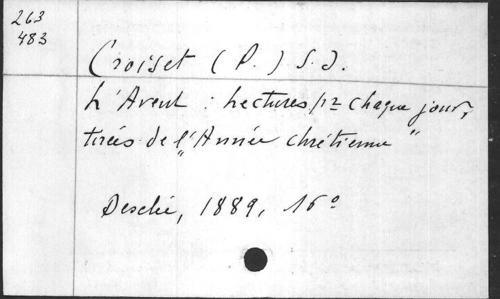 263
483
Croiset (P.) S.J.
L'Avent : Lectures pr chaque jour,
tirées de l'"Année chrétienne"
Desclée, 1889, 16°